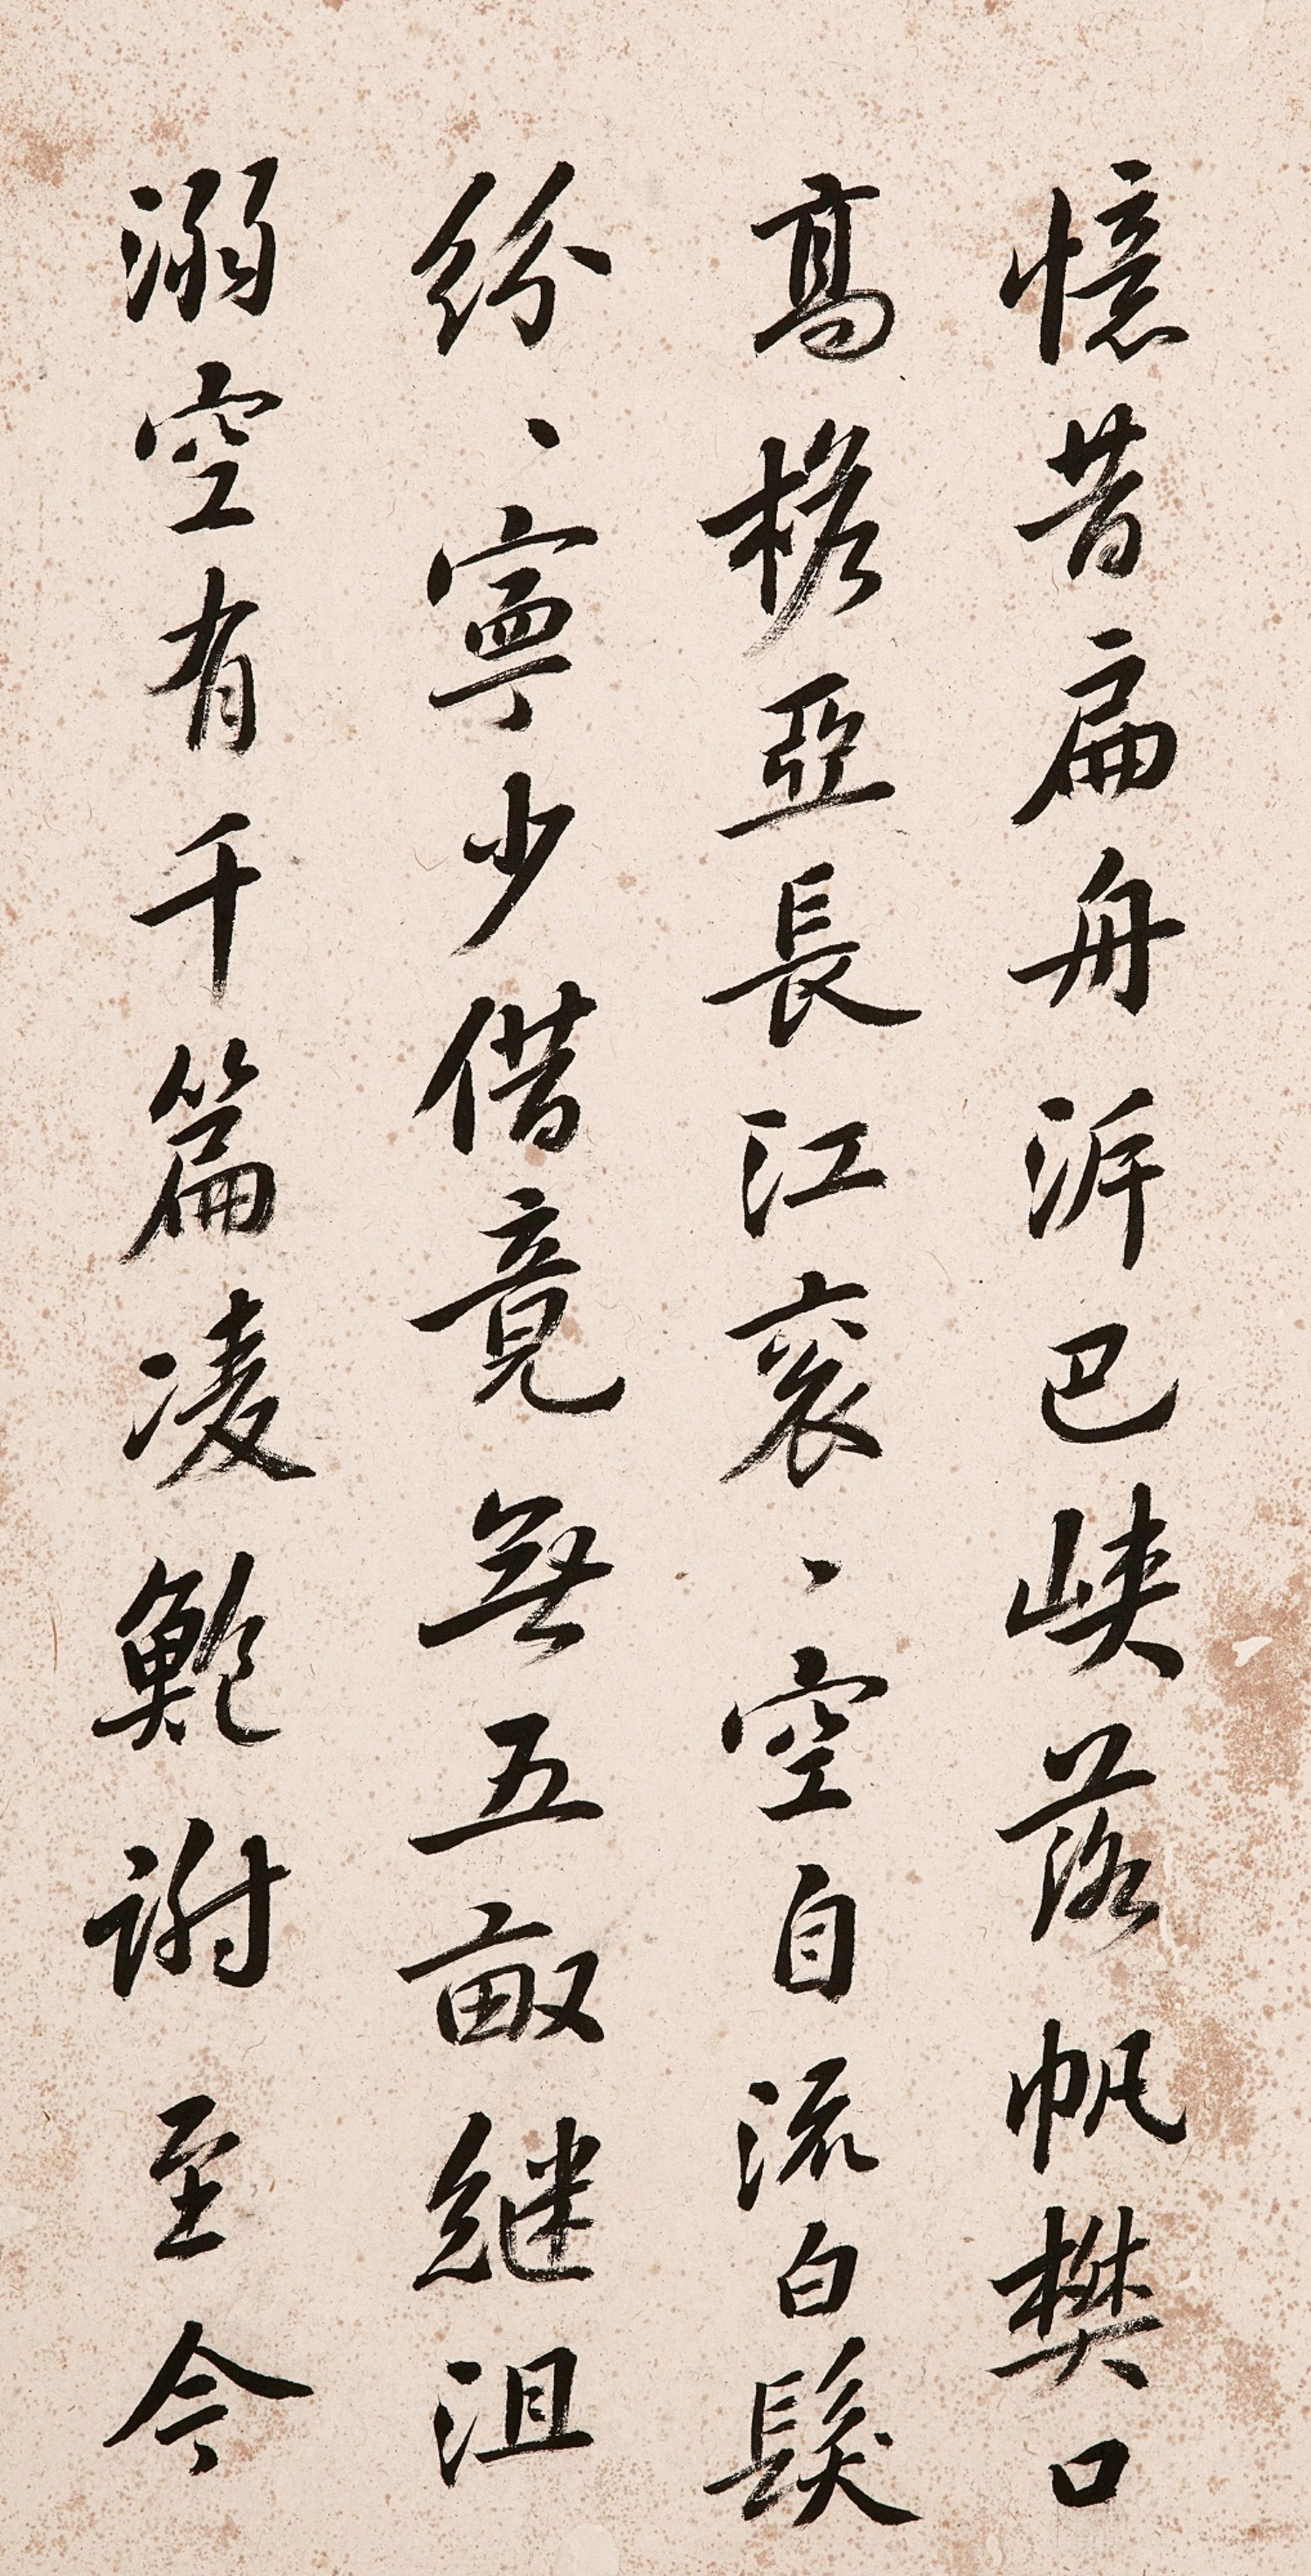 憶昔扁舟泝巴峽落帆樊口
高桅亞長江衮、空自流白髮
紛、寧少借竟無五畝繼沮
溺空有千篇凌鮑謝至今